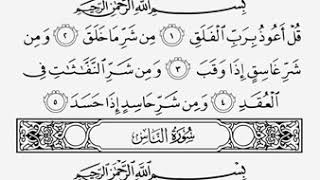 بِسْمِ ٱللَّهِ ٱلرَّحْمَٰنِ ٱلرَّحِيمِ
قُلْ أَعُوذُ بِرَبِّ ٱلْفَلَقِ ١ مِن شَرِّ مَا خَلَقَ ٢ وَمِن
شَرِّ غَاسِقٍ إِذَا وَقَبَ ٣ وَمِن شَرِّ ٱلنَّفَّٰثَٰتِ فِى
ٱلْعُقَدِ ٤ وَمِن شَرِّ حَاسِدٍ إِذَا حَسَدَ ٥
سُورَةُ النَّاسِ
بِسْمِ ٱللَّهِ ٱلرَّحْمَٰنِ ٱلرَّحِيمِ